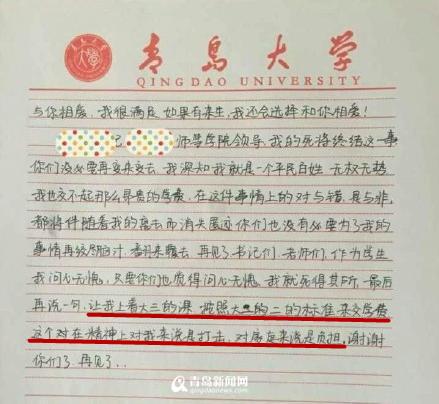 青岛大学
QINGDAO UNIVERSITY
与你相爱，我很满足，如果有来生，我还会选择和你相爱！
记、 师等学院领导，我的死将终结这一事
你们没必要再变来变去，我深知我就是一个平民百姓 无权无势
我也交不起那么昂贵的学费，在这件事情上的对与错，是与非，
都将伴随着我的离去而消失匿迹 你们也没有必要为了我的
事情再绞尽脑汁、翻来覆去，再见了 书记们、老师们，作为学生
我问心无愧，只要你们也觉得问心无愧，我就死得其所，最后
再说一句，让我上着大三的课 按照大二的标准来交学费
这个对在精神上对我来说是打击，对家庭来说是负担，谢谢
你们了，再见了...
青岛新闻网